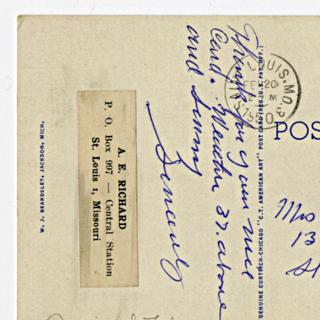 Thank you for your nice
Card. Weather 37. above
and sunny
Sincerely
A. E. RICHARD
P. O. Box 997 — Central Station
St. Louis 1, Missouri
W. J. BEARDSLEY, JACKSON, MICH.
GENUINE CURTEICH-CHICAGO "C.T. AMERICAN ART" POST CARD (REG. U.S. PAT. OFF.)
LOUIS, MO.
20
M
POS
Mrs
13
St